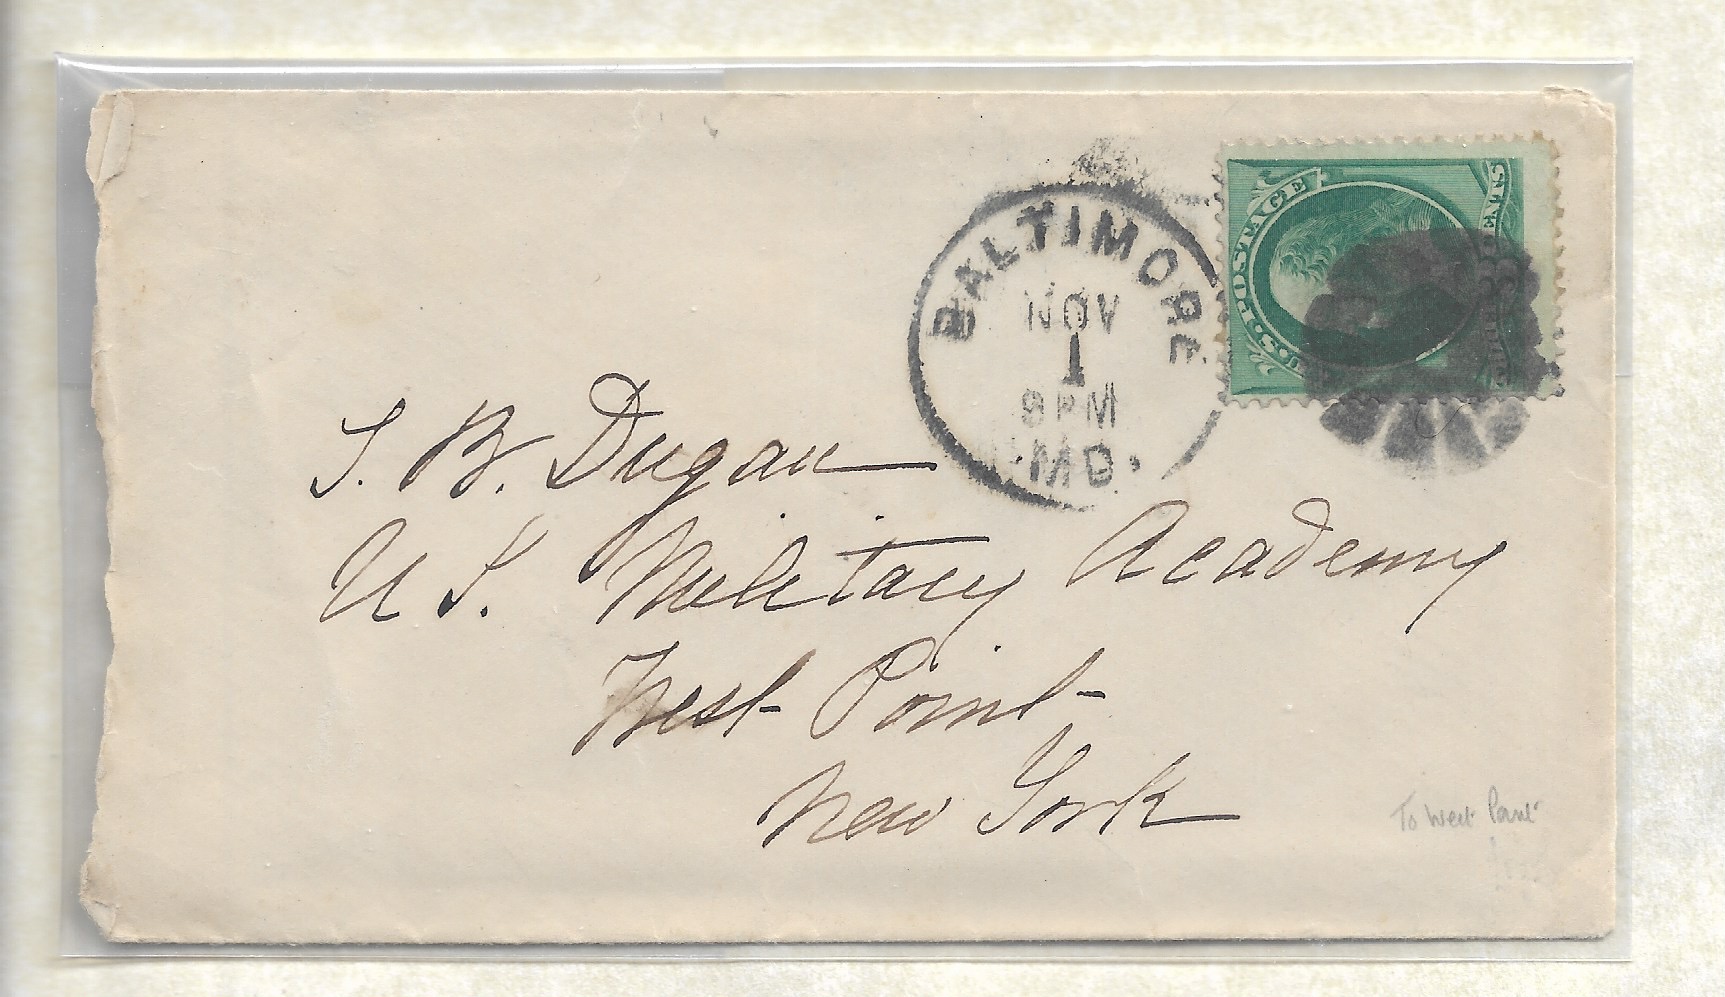 BALTIMORE
NOV
1
8 PM
MD.
U.S. POSTAGE
T. B. Dugan
U S. Military Academy
West Point
New York
To West Point